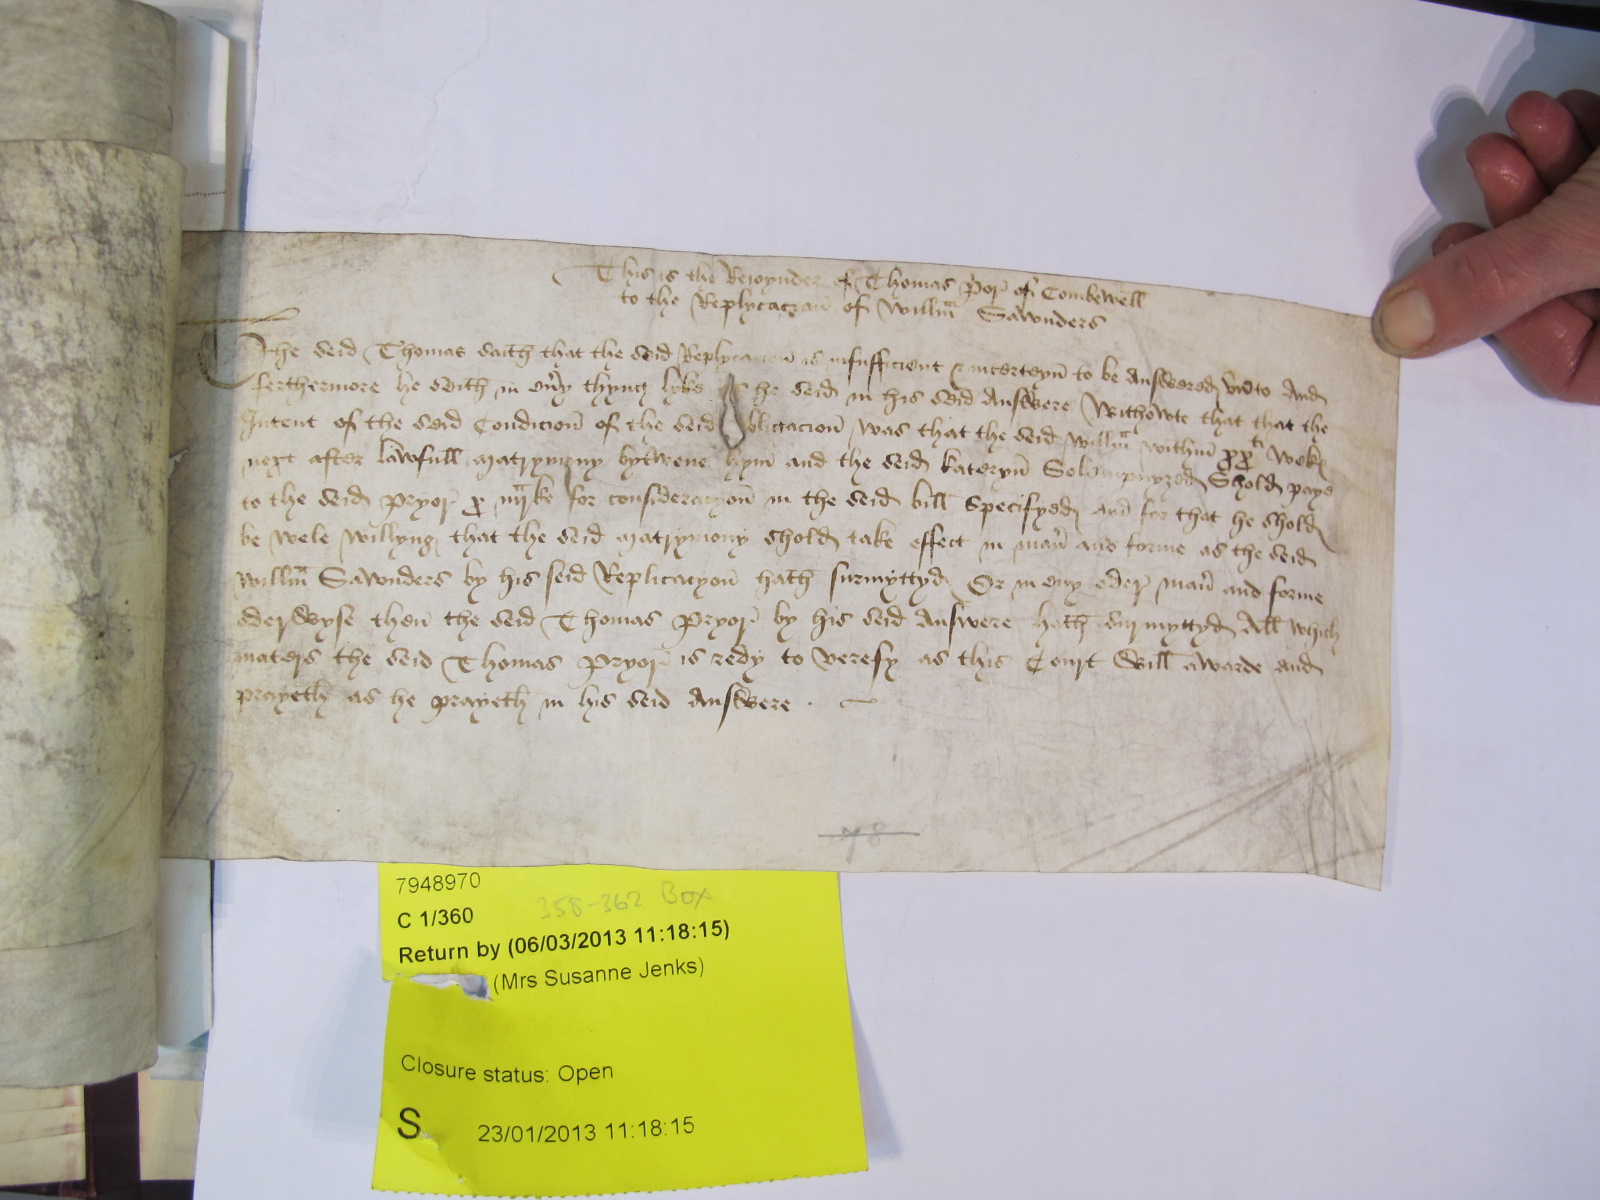 This is the Reioynder of Thomas Prior of Combewell
to the Replycacion of Willm Sawnders
The seid Thomas saith that the seid Replycacion is insufficient & incerteyn to be answered vnto And
ferthermore he seith in eny thyng lyke as he seid in his seid Answere Withowte that that the
Intent of the seid Condicion of the seid Obligacion was that the seid Willm within xx ti Wekes
next after lawfull matrymony bytwene hym and the seid Kateryn Solempnyzed Shold paye
to the seid Pryor x m'rke for consideracyon in the seid bill Specifyed and for that he shold
be wele Willyng that the seid matrymony shold take effect in man' and forme as the seid
Willm Sawnders by his seid Replicacyon hath surmyttyd Or in eny oder man' and forme
oderwyse then the seid Thomas Pryor by his seid Answere hath surmyttyd All which
maters the seid Thomas Pryor is redy to verefy as this Court Will awarde and
prayeth as he prayeth in his seid Answere
17
78
7948970
358-362 Box
C 1/360
Return by (06/03/2013 11:18:15)
(Mrs Susanne Jenks)
Closure status: Open
S 23/01/2013 11:18:15